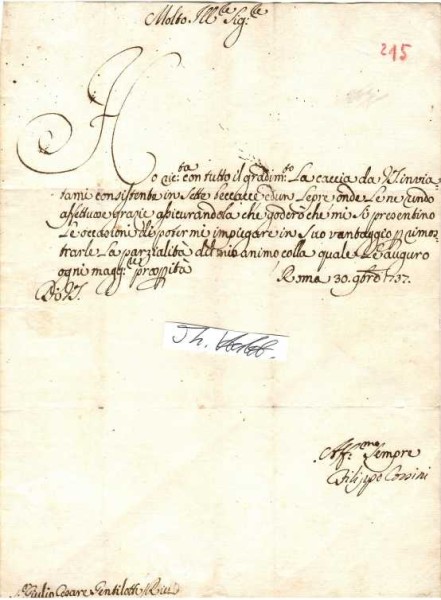 Molto Ill.re Sig.re
215
Ho ric.ta con tutto il gradim.to La caccia da VS invia
tami consistente in Sette beccacce, ed un Lepre onde Le ne rendo
affettuose grazie assicurandola che goderò che mi si presentino
Le occasioni di potermi impiegare in Suo vantaggio, per dimos
trarle La parzialità del mio animo colla quale Le auguro
ogni magg.re prosp.ità Roma 30. 9bre 1737.
Di VS.
Aff.mo Sempre
Filippo Corsini
Giulio Cesare Gentilotti